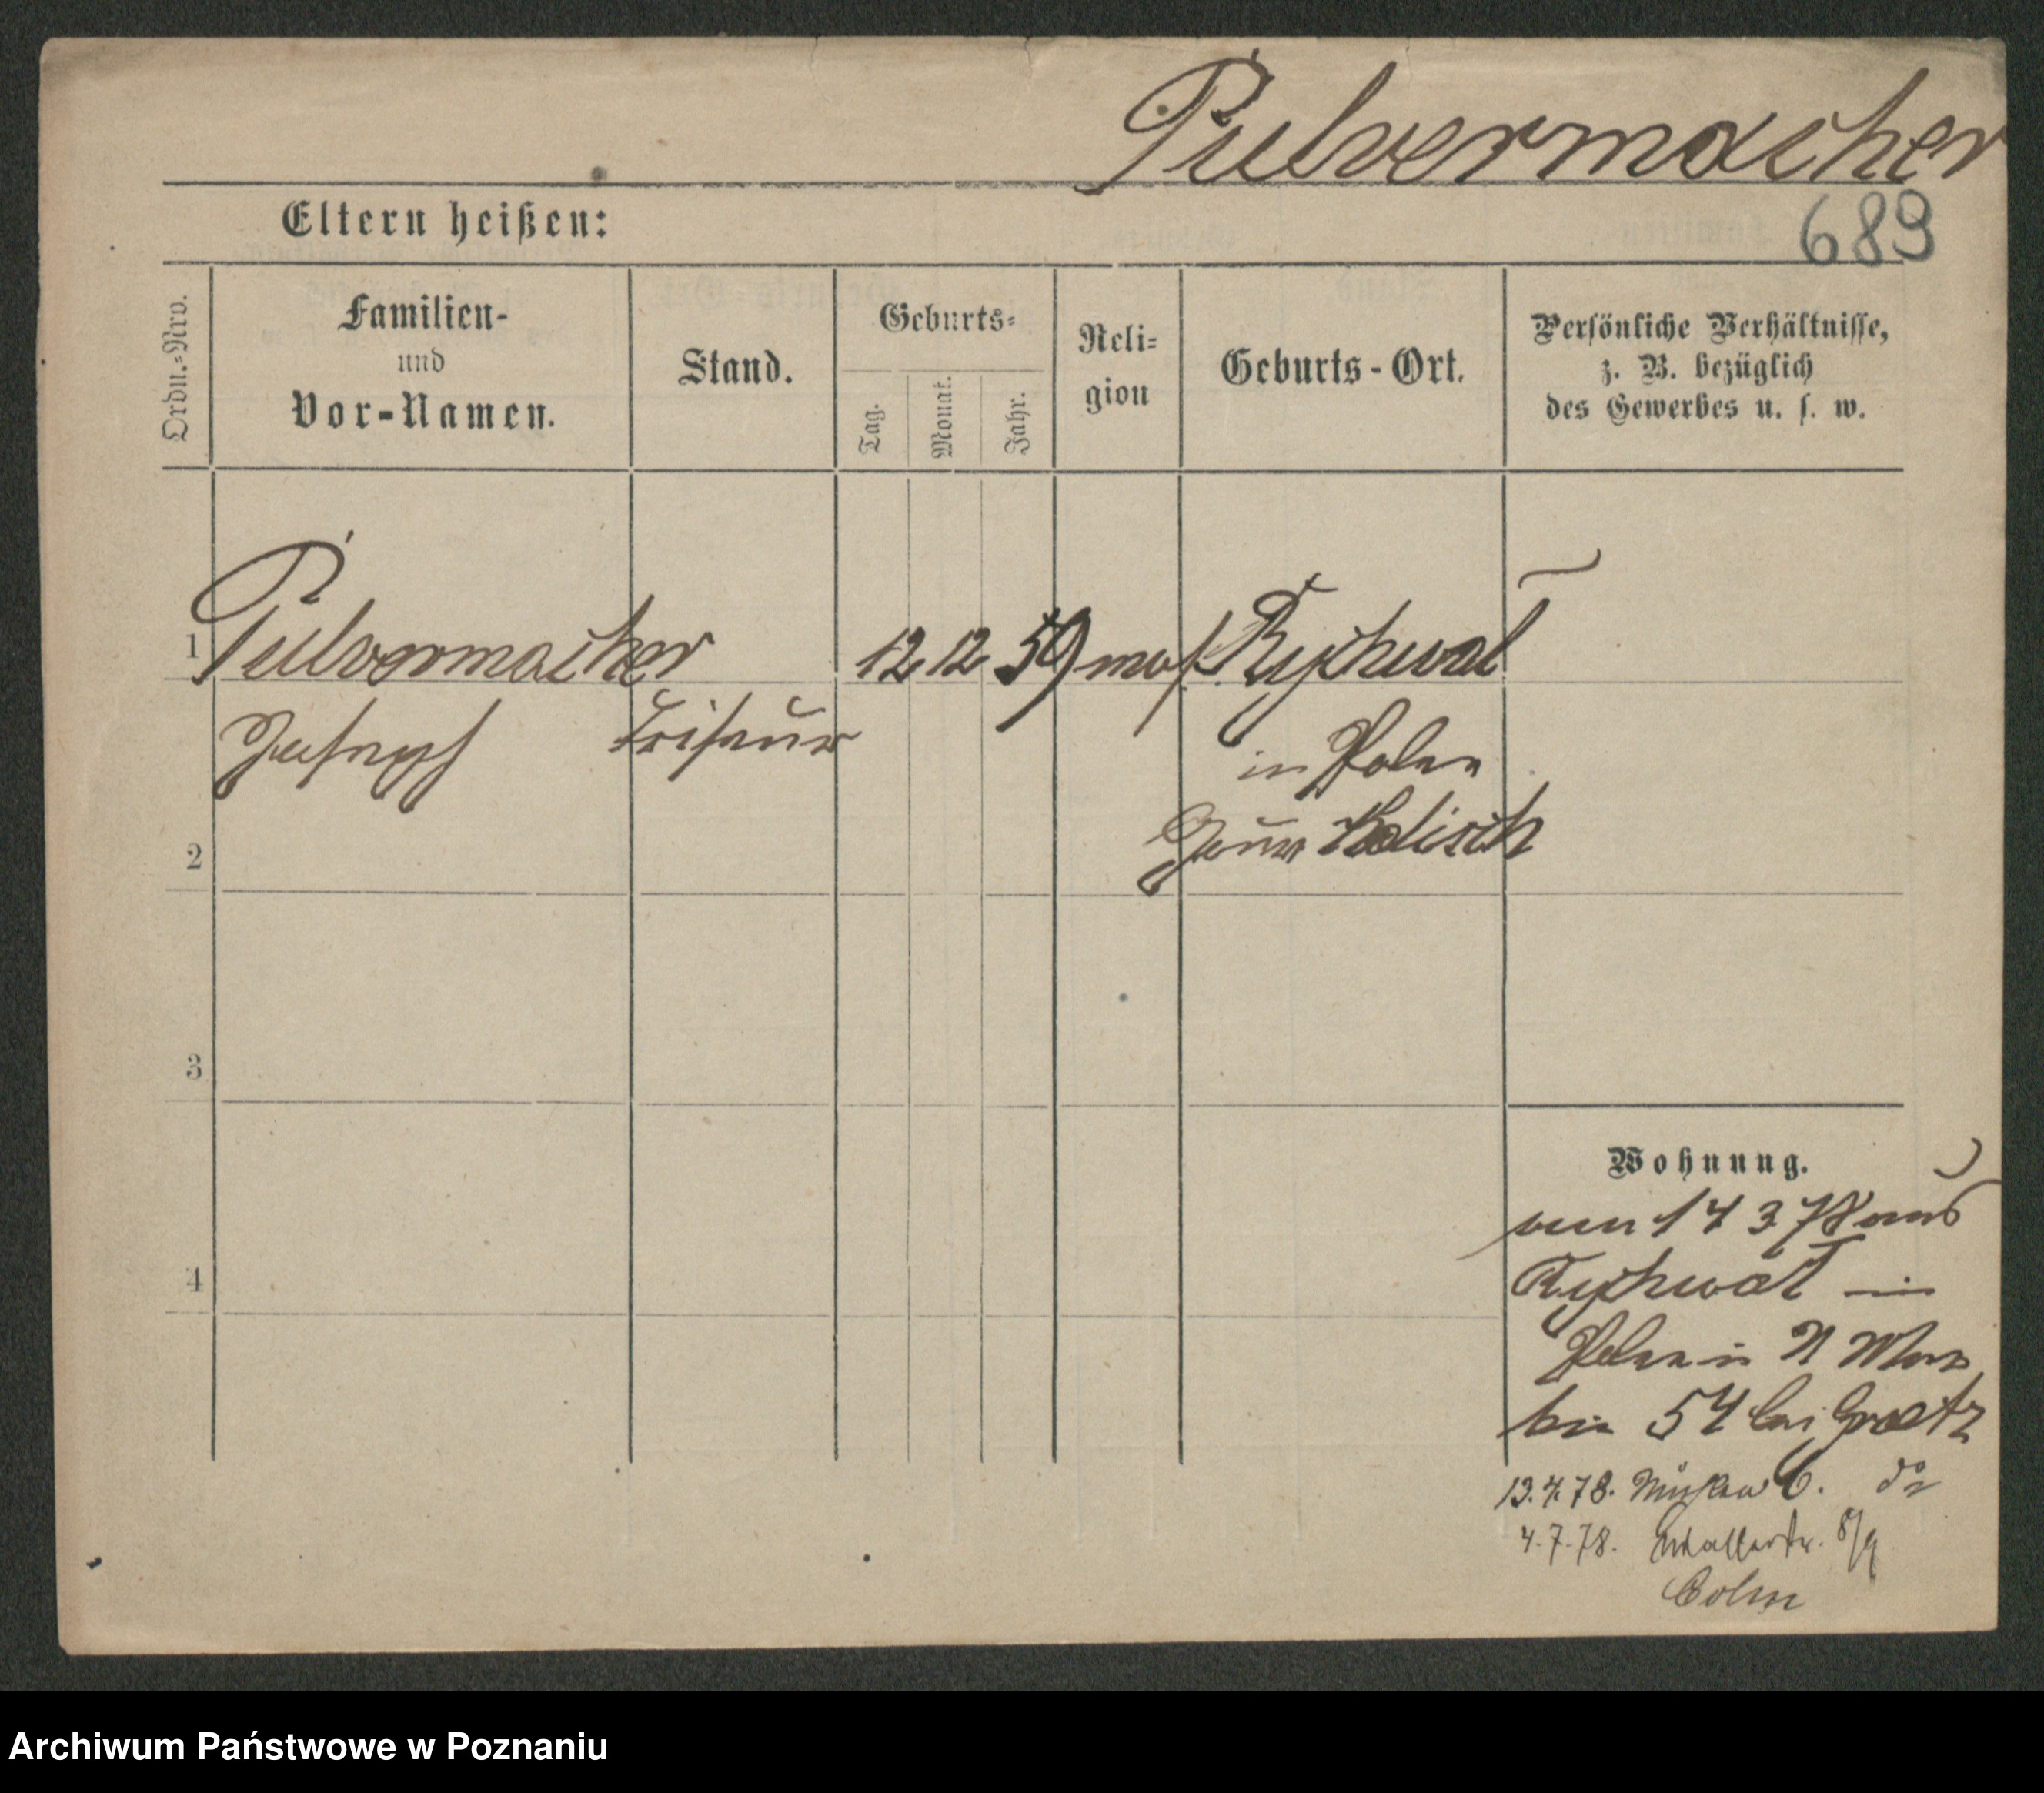 Pulvermacher
689
Eltern heißen:
Ordn.-Nro.
Familien-
und
Vor-Namen.
Stand.
Geburts-
Tag.
Monat.
Jahr.
Reli-
gion
Geburts-Ort.
Persönliche Verhältnisse,
z. B. bezüglich
des Gewerbes u. s. w.
1 Pulvermacher 12 12 59 mos Rychwal
Friseur
in Polen
Gouv Kalisch
2
3
Wohnung.
4
14 3 78 aus
Rychwal in
Polen in
54 bei Graetz
13.4.78.
4.7.78. Wallstr. 8/9
Cohn
Archiwum Państwowe w Poznaniu